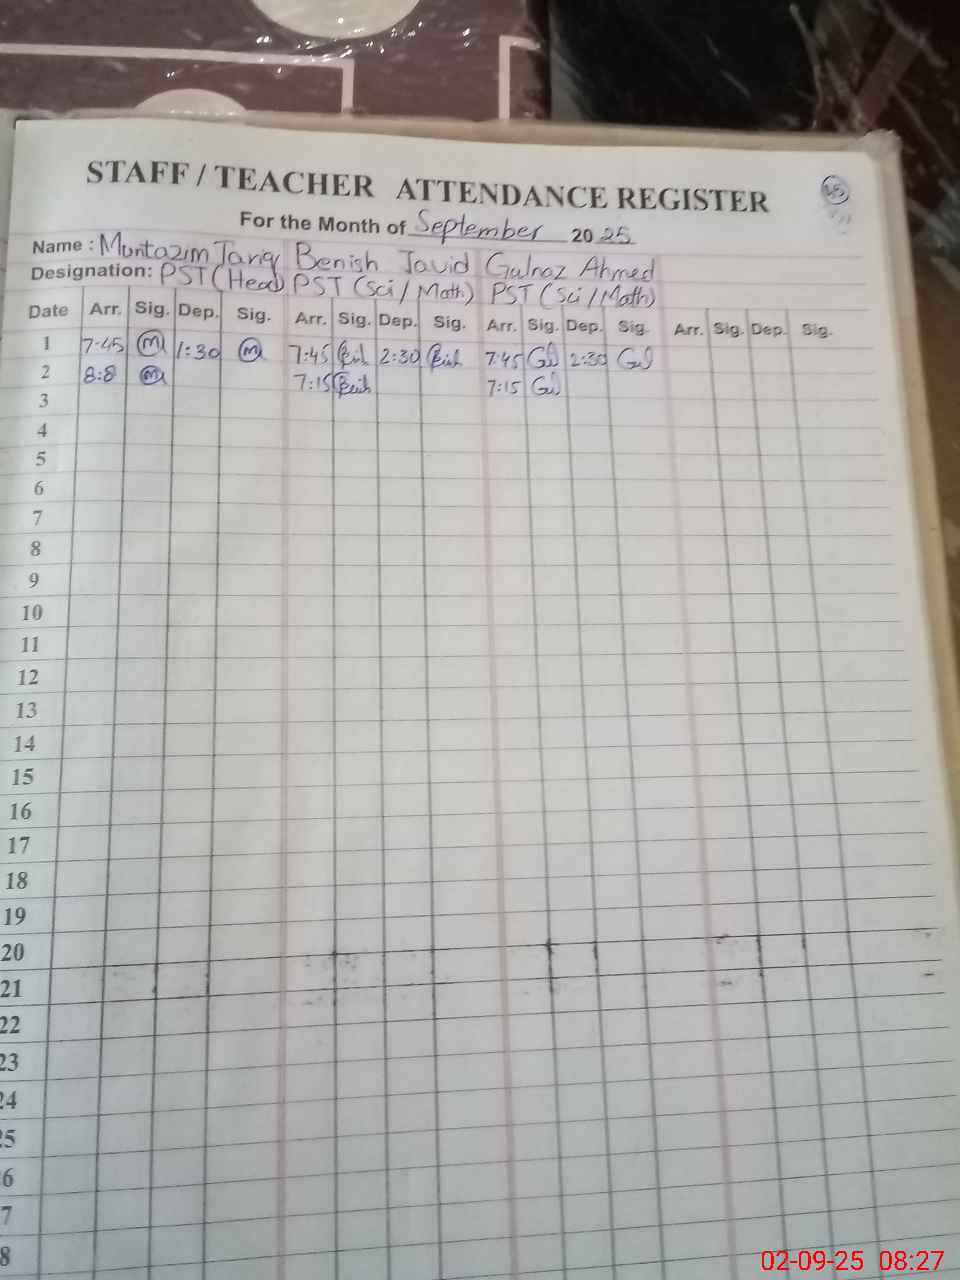 STAFF / TEACHER ATTENDANCE REGISTER
For the Month of September 2025
Name : Muntazim Tariq Benish Javid Gulnaz Ahmed
Designation: PST (Head) PST (Sci / Math) PST (Sci / Math)
Date Arr. Sig. Dep. Sig. Arr. Sig. Dep. Sig. Arr. Sig. Dep. Sig. Arr. Sig. Dep. Sig.
1 7:45 M 1:30 M 7:45 2:30 7:45 Gul 2:30 Gul
2 8:8 M 7:15 7:15 Gul
3
4
5
6
7
8
9
10
11
12
13
14
15
16
17
18
19
20
21
22
23
24
25
6
7
8
02-09-25 08:27